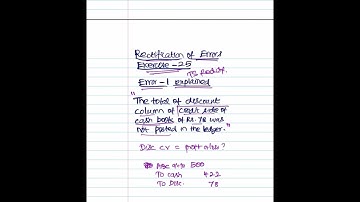 Rectification of Errors
Exercise - 25
To Rectify.
Error - 1 explained
"The total of discount
column of credit side of
cash books of Rs. 78 was
not posted in the ledger."
Disc CV = profit
500
To cash 422
To Disc. 78